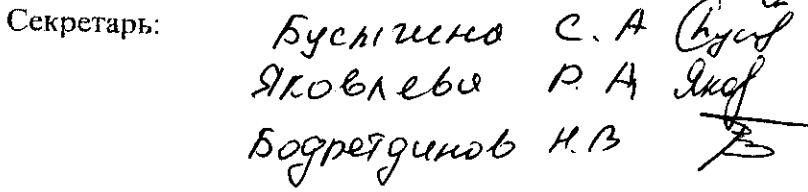 Секретарь: Бусыгина С. А
Яковлева Р. А
Бодретдинов Н.В